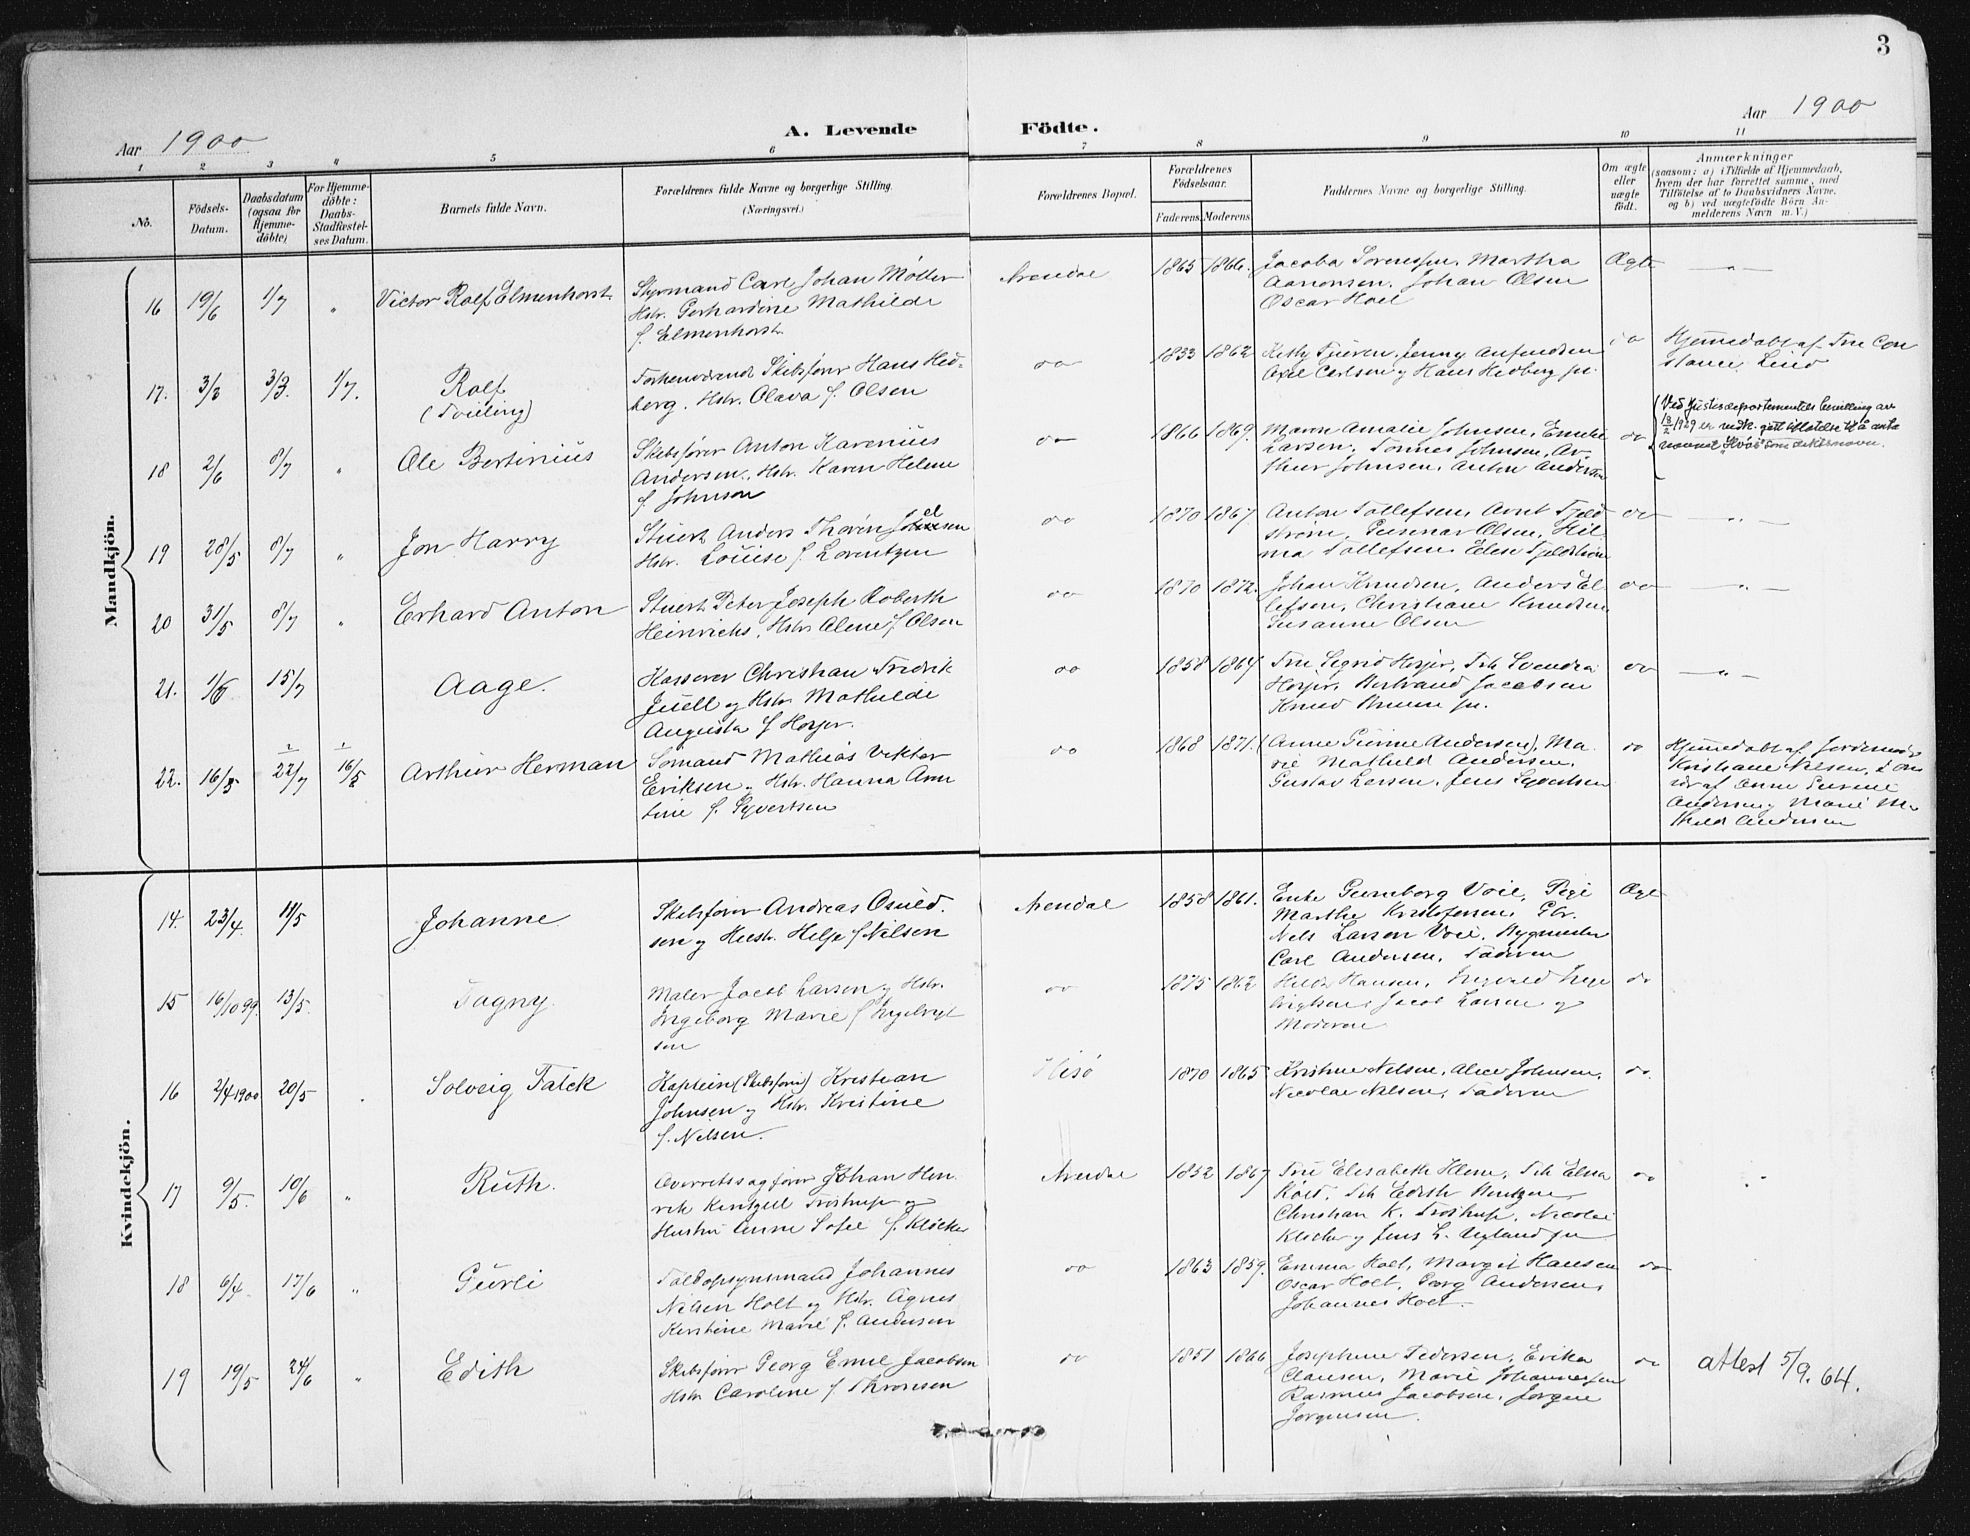 3
Aar 1900
A. Levende Födte.
Aar 1900
1 2 3 " 5 6 7 8 9 10 11
No.
Födsels-
Datum.
Daabsdatum
(ogsaa for
Hjemme-
döbte)
For Hjemme-
döbte:
Daabs-
Stadfæstel-
ses Datum.
Barnets fulde Navn.
Forældrenes fulde Navne og borgerlige Stilling.
(Næringsvei.)
Forældrenes Bopæl.
Forældrenes
Födselsaar.
Faderens. Moderens.
Faddernes Navne og borgerlige Stilling.
Om ægte
eller
uægte
födt.
Anmærkninger
(saasom: a) i Tilfælde af Hjemmedaab,
hvem der har forrettet samme, med
Tilföielse af to Daabsvidners Navne,
og b) ved uægtefödte Börn An-
melderens Navn m. V.)
Mandkjön.
16 19/6 1/7 "
Victor Rolf Elmenhorst
Styrmand Carl Johan Møller
Hstr. Gerhardine Mathilde
f. Elmenhorst
Arendal
1865 1866.
Jacoba Sørenssen, Martha
Aanonsen, Johan Olsen
Oscar Hoel
Ægte
17. 3/3 3/3. 1/7.
Rolf
(Tvilling)
Forhenværende Skibsfører Hans Hed-
berg. Hstr. Olava f. Olsen
do
1833 1862
Axel Carlsen og Hans Hedberg jr.
do
Hjemmedøbt af Fru Con
stance Lind
18 2/6 8/7 "
Ole Bertinius
Skibsfører Anton Karenius
Andersen, Hstr. Karen Helene
f. Johnson
do
1866 1869.
Maren Amalie Johnsen, Emilie
Larsen, Tønnes Johnsen, Ar-
thur Johnsen, Anton Andersen
do
Ved Justisdepartementets bevilling av
navnet "Hvås" som slektsnavn.
19 28/5 8/7 "
Jon Harry
Stuert Anders Thorén
Hstr. Louise f. Lorentzen
do
1870 1867
Anton Tollefsen, Arnt Fjeld
strøm, Gunnar Olsen, Hil-
ma Tollefsen, Elise Fjeldstrøm
do
20 31/5 8/7 "
Erhard Anton
Stuert Peter Joseph Roberth
Heinrichs, Hstr. Olene f. Olsen
do
1870 1872.
Johan Knudsen, Anders El-
lefsen, Christiane Knudsen
Susanne Olsen
do
21. 1/6 15/7
Aage.
Kasserer Christian Fredrik
Juell og Hstr. Mathilde
Augusta f. Horjer.
do
1858 1864
Fru Sigrid Horjer, Frk Svendea
Horjer, Bertrand Jacobsen
Knud Bruun jr.
do
22. 16/3 22/7 16/3
Arthur Herman
Sømand Mathias Viktor
Eriksen og Hstr. Hanna Arn
tine f. Syvertsen
do
1868 1871.
(Anne Gurine Andersen), Ma-
rie Mathild Andersen,
Gustav Larsen, Jens Syvertsen
do
Hjemmedøbt af Jordemoder
Kristiane Nilsen, i Over
vær af Anne Gurine
Andersen og Marie Ma
thilde Andersen
Kvindekjön.
14. 23/4. 11/5
Johanne
Skibsfører Andreas Osuld.
sen og Hustr. Helje f. Nilsen
Arendal
1858 1861.
Enke Gunneborg Voie, Pige
Marthe Kristofersen, Gbr.
Nels Larsen Voie, Bygmester
Carl Andersen, Faderen
Ægte
15 16/10 99. 13/5.
Tagny.
Maler Jacob Larsen og Hstr.
Ingeborg Marie f. Ingebrigt
sen
do
1875 1862
Hilda Hansen, Ingvald Inge
brigtsen, Jacob Larsen og
Moderen
do
16 2/4 1900 20/5
Solveig Falck
Kaptein (Skibsfører) Kristian
Johnsen og Hstr. Kristine
f. Nelsen.
Hisø
1870 1865
Kristine Nilsen, Alice Johnsen,
Nicolai Nilsen, Faderen
do.
17 9/5. 10/6 "
Ruth.
Overretssagfører Johan Hen
rik Kentzell Frostrup og
Hustru Anne Sofie f. Kløcker
Arendal
1852 1867
Fru Elisabeth Klem, Frk Elna
Kold, Frk Edith Bentzen,
Christian K. Frostrup, Nicolai
Kløcker og Jens L. Ugland jun
do
18 6/4 17/6 "
Gurli
Toldopsynsmand Johannes
Nilsen Holt og Hstr. Agnes
Kirstine Marie f. Andersen
do
1863 1859.
Emma Holt, Margit Hansen
Oscar Holt, Georg Andersen,
Johannes Holt.
do
19 19/5 24/6 "
Edith
Skibsfører Georg Emil Jacobsen
Hstr Caroline f. Thronsen
do
1851 1866
Josephine Pedersen, Erika
Clausen, Marie Johannessen
Rasmus Jacobsen, Jørgen
Jørgensen.
do
attest 5/9. 64.